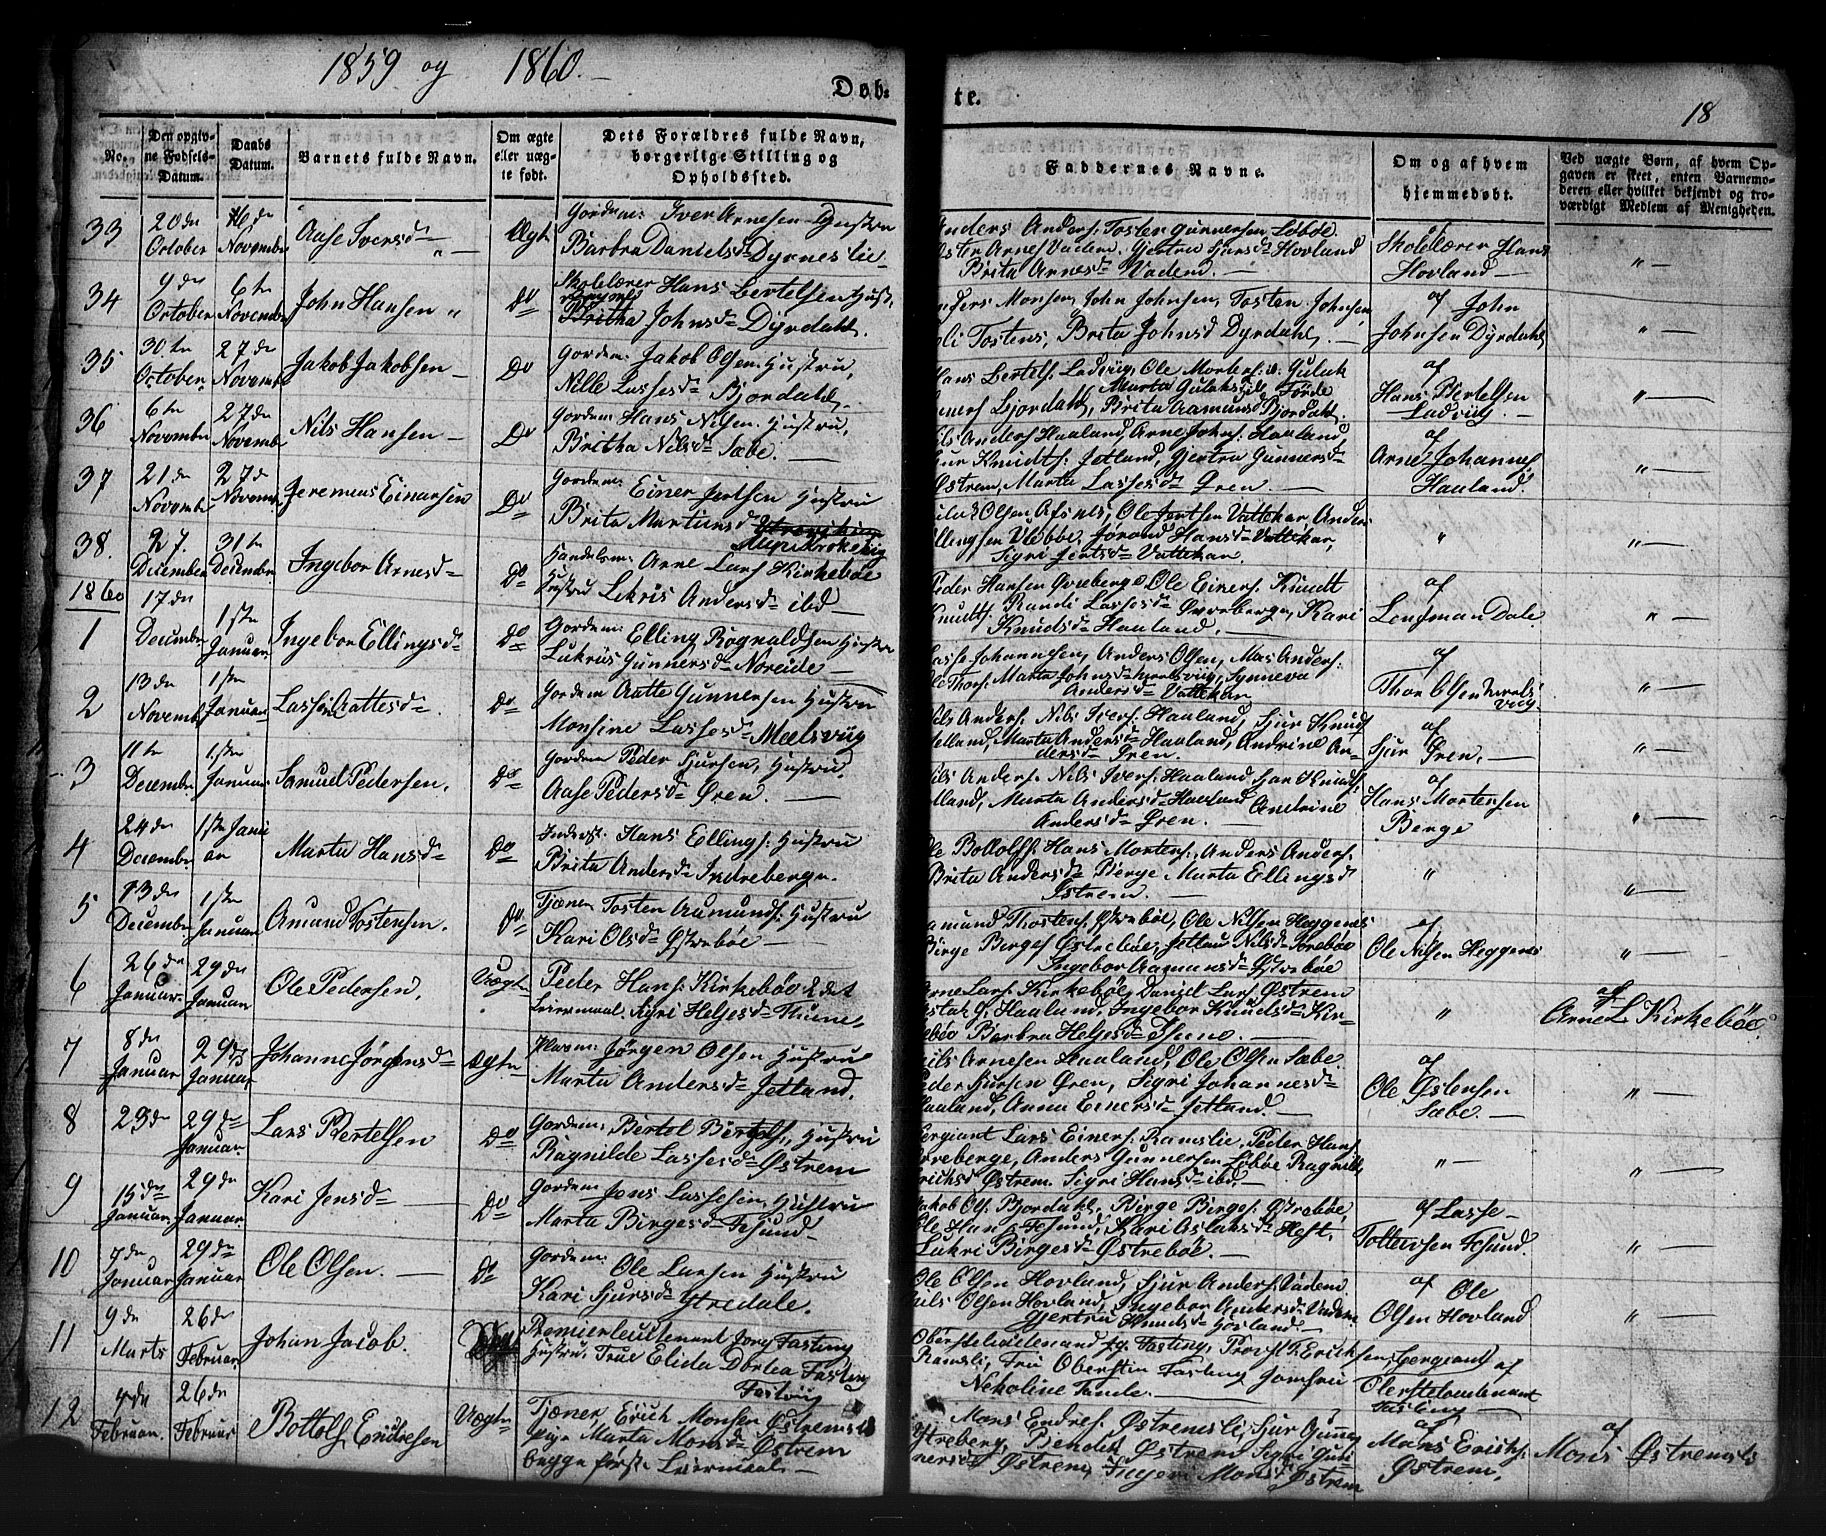 1859 og 1860.
Døb=
te.
18
No.
Den opgiv-
ne Fødsels-
Datum.
Daabs
Datum.
Barnets fulde Navn.
Om ægte
eller uæg-
te født.
Dets Forældres fulde Navn,
borgerlige Stilling og
Opholdssted.
Faddernes Navne.
Om og af hvem
hjemmedøbt.
Ved uægte Børn, af hvem Op-
gaven er skeet, enten Barnemo-
deren eller hvilket bekjendt og tro-
værdigt Medlem af Menigheden.
33
20de
October
November
Aase Iversd
Ægte
Iver Arnesen
Barbra Danielsd Dyrneslie
Anders Anders: Tosten Gunnersen Løbøe
Arnes Vadem, Gjertru Sjursd Hovland
Brita Arnesd Vadem
Skolelærer Hans
Hovland
"
34
9de
October
6te
November
John Hansen
Do
Skolelærer Hans Bertelsen Hust
Britha Johnsd Dyrdahl.
Anders Monsen, John Johnsen, Tosten Johnsen,
Tostens, Brita Johnsd Dyrdahl.
af John
Johnsen Dyrdahl
"
35
30te
October
27de
Novemb
Jakob Jakobsen
Do
Gordm: Jakob Olsen Hustru,
Nille Lassesd Bjordahl.
Hans Bertels: Ladvig, Ole Mortens: Guluk
Marta Guluksd Førde
Bjordahl, Brita Aamunsd Bjordahl.
af
Hans Bertelsen
Ladvig.
"
36
6te
Novembr
27de
Novemb
Nils Hansen
Do
Gordm: Hans Nilsen Hustru,
Britha Nilsd Sæbe.
Nils Anders: Haaland, Arne Johns: Haaland,
Gur Knudts: Jetland, Gjertru Gunnersd
Østrem, Marta Lassesd Øren
af
Arne Johannes
Haaland.
"
37
21de
Novemb
27d
Novemb
Jeremias Einarsen
Do
Gordm: Einer Jertsen Hustru
Brita Martinusd
Olsen Afsnes, Ole Jertsen Vattekar, Anders
Ellingsen Vebbøe, Jørand Hansd Vattekar,
Sigri Jertsd Vattekar
"
"
38.
27.
December
31te
December
Ingebor Arnesd
Do
Handelsm: Arne Lars Kirkebøe
Hustru Lekris Andersd ibd
Peder Hansen Øvreberge, Ole Einers: Knudt
Knudts: Randi Lassesd Øvreberge, Kari
Knudsd Haaland.
af
Lensman Dale.
"
1860
1
17de
December
1ste
Januar
Ingebor Ellingsd
Do
Gordm: Elling Rognaldsen Hustru
Lukris Gunnersd Noreide
Lasse Johannesen, Anders Olsen, Mas Anders:
Ole Thors: Marta Johnsd Synneva
Andersd Vattekar
af
Thor Olsen
"
2
13de
Novemb
1ste
Januar
Lasse Aattesd
Do
Gordm Aatte Gunnersen Hustru
Monsine Lassesd Meelsviig
Nils Anders: Nils Ivers: Haaland, Sjur Knuds
Jetland, Marta Andersd Haaland, Andrine An-
dersd Øren.
af
Sjur Øren.
"
3
11te
December
1ste
Januar
Samuel Pedersen.
Do
Gordm Peder Sjursen, Hustru,
Aase Pedersd Øren.
Nils Anders: Nils Ivers: Haaland, Sjur Knuds
Marta Andersd Haaland Andrine
Andersd Øren.
af
Hans Mortensen
Berge
"
4
24de
December
1ste Janu
ar
Marta Hansd
Do
Inderst: Hans Ellings: Hustru
Brita Andersd Indreberge.
Ole Bottolfs: Hans Mortens:, Anders Anders:
Brita Andersd Berge Marta Ellingsd
Østrem
"
"
5
13de
December
1ste
Januar
Amund Tostensen.
Do
Tjæner Tosten Aamunds: Hustru
Kari Olsd Østrebøe
Aamund Thostens: Østrebøe, Ole Nilsen Heggenes
Birge Birges Østrebøe, Jetlau Nilsd
Ingebor Aamunsd Østrebøe
af
Ole Nilsen Heggenes
"
6
26de
Januar
29de
Januar
Ole Pedersen.
Uægte
Peder Hans: Kirkebøe 2det
Leiermaal. Sigri Heljesd Thune
Arne Lars: Kirkebøe, Daniel Lars: Østrem
Haaland, Ingebor Knudsd Kir-
kebøe Barbra Heljesd Thune.
"
af
Arne L Kirkebøe
7
8de
Januar
29de
Januar
Johanne Jørgensd
Ægte
Jørgen Olsen Hustru
Marta Andersd Jetland.
Nils Arnesen Haaland, Ole Olsen Sæbe.
Peder Sjursen Øren, Sigri Johannesd
Haaland, Anna Einersd Jetland.
af
Ole Østensen
Sæbe.
"
8
23de
29de
Januar
Lars Bertelsen
Do
Gordm: Bertel Bertels:, Hustru
Ragnilde Lassesd Østrem
Sergiant Lars Einers: Ramslie, Peder Hans
Øvreberge, Anders Gunnersen Løbøe Ragnild
Erichsd Østrem Sigri Hansd ibd.
"
"
9
15de
Januar
29de
Januar
Kari Jensd
Do
Gordm Jens Lassesen Hustru
Marta Birgesd Føsund
Jakob Ol: Bjordahl, Birge Birges: Østrebøe,
Ole Hans Føsund, Kari Aslaksd Heft,
Lukri Birgesd Østrebøe.
af Lasse
Føsund.
"
10
7de
Januar
29de
Januar
Ole Olsen.
Do
Gordm: Ole Larsen Hustru
Kari Sjursd Ytredale.
Ole Olsen Hovland, Sjur Anders: Vadem
Nils Olsen Hovland, Ingebor Andersd Vadem
Gjertru Knudsd Hovland.
af Ole
Olsen Hovland
"
11
9de
Marts
26de
Februar
Johan Jacob.
Premierleutenant Fasting
Hustru, Frue Elida Dortea Fasting
Fasting, Provst Erichsen, Sergeant
Ramsli, Fru Oberstin Fasting Jomfru
Nikoline Tande.
af
Oberstleutenant
Fasting
12
4de
Februar.
26de
Februar
Bottolf Endresen
Uægte
Tjæner Erich Monsen Østremsli
pige Marta Monsd Østrem
begge første Leiermaal
Mons Endres: Østremsli, Sjur Gunners
Ytreberg, Bendik Østrem Sigri Gun-
nersd Østrem, Ingeri Monsd Østrem
af
Mons Ericks:
Østrem.
af
Mons Østremsli